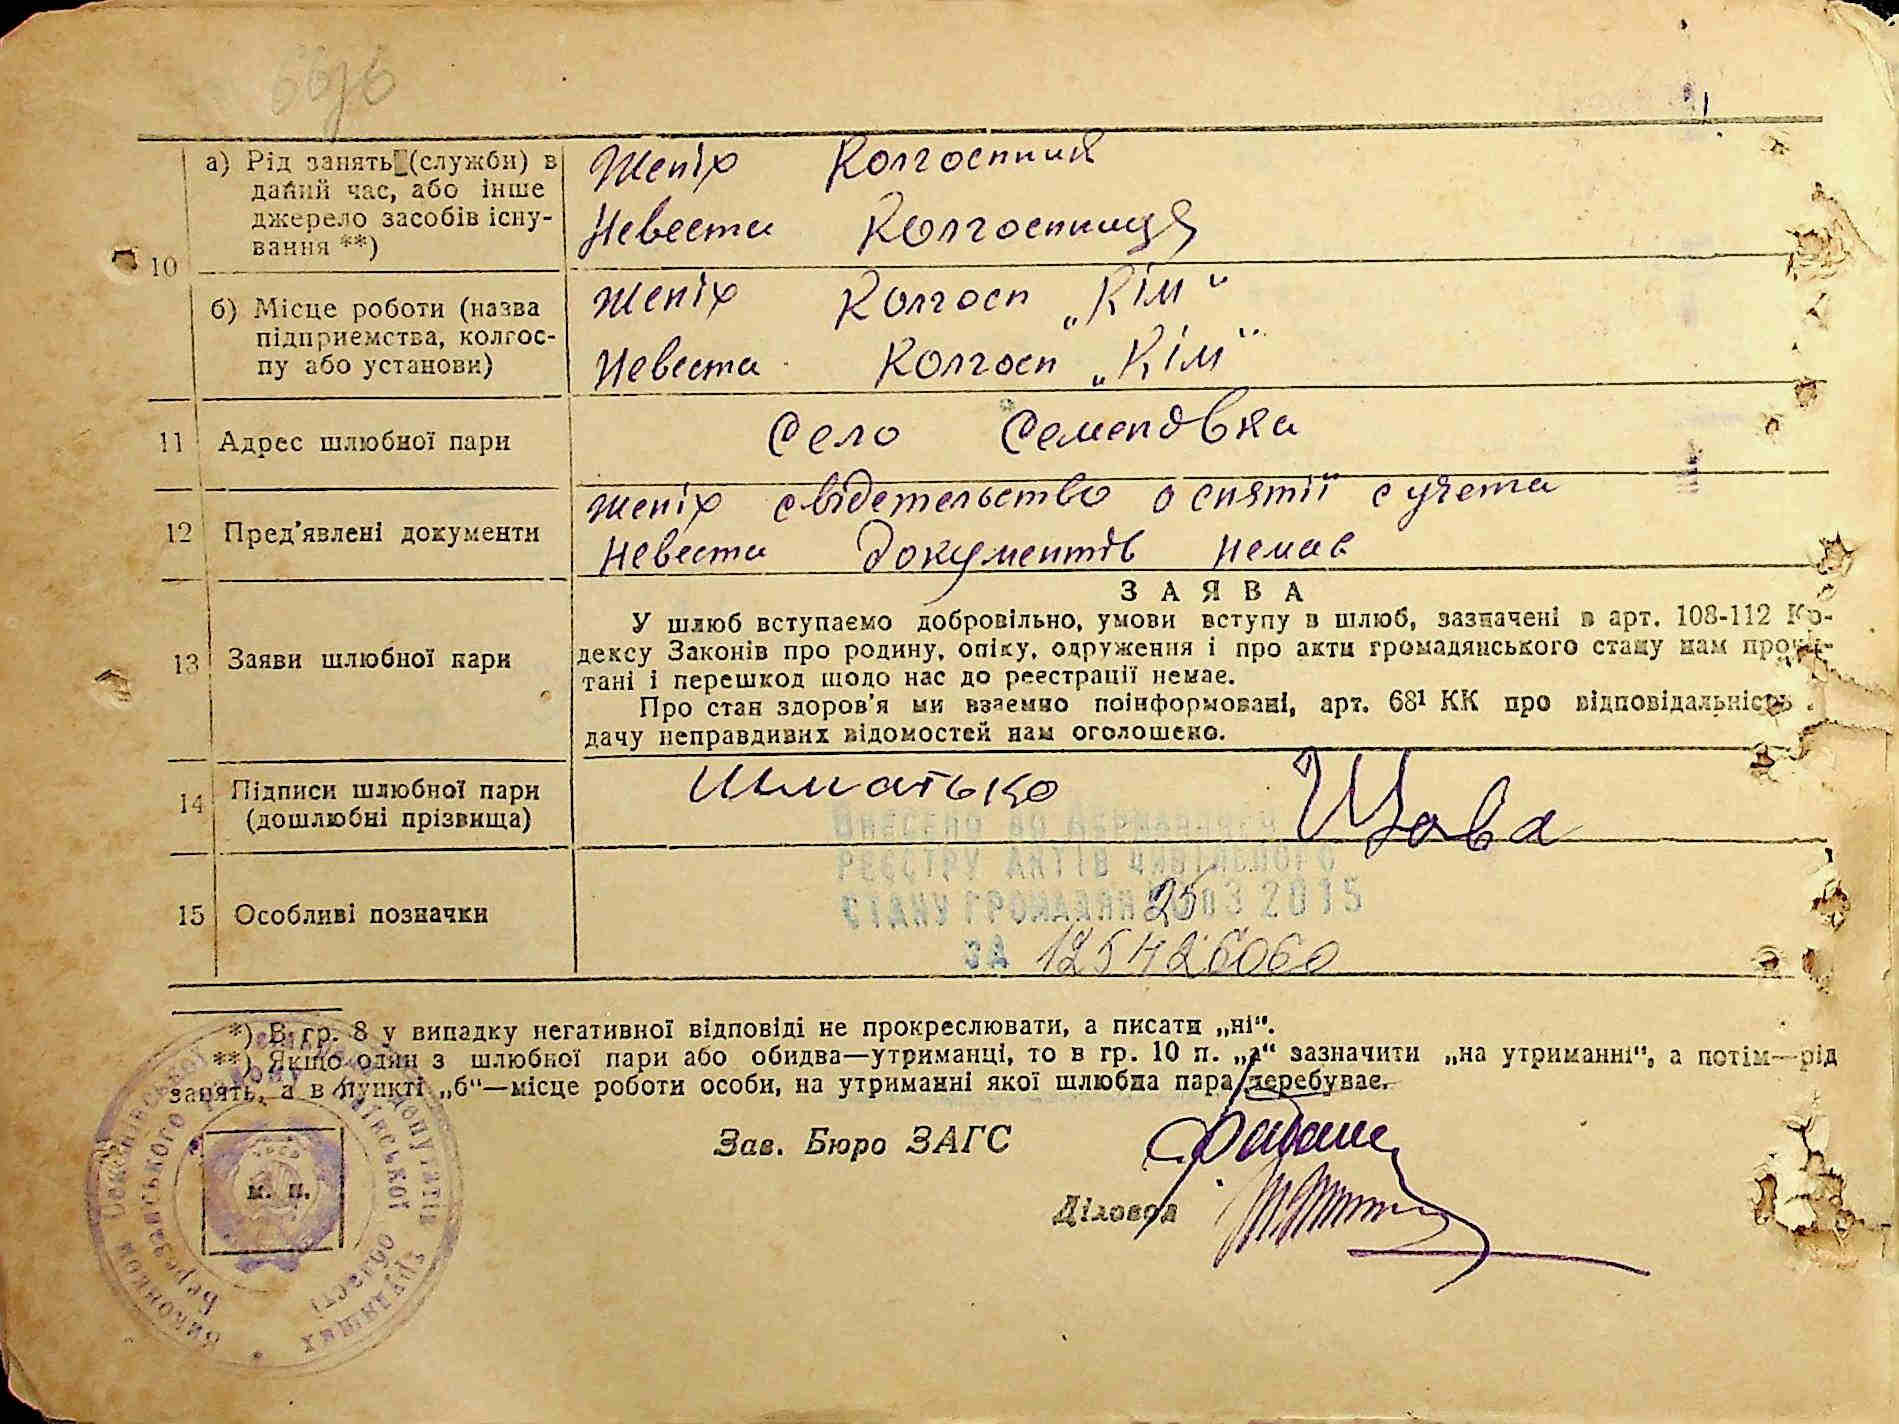 а) Рід занять (служби) в
даний час, або інше
джерело засобів існу-
вання **)
Женіх Колгоспник
Невеста Колгоспниця
10
б) Місце роботи (назва
підприемства, колгос-
пу або установи)
Женіх Колгосп „Кім“
Невеста Колгосп „Кім“
11 Адрес шлюбної пари
Село Семеновка
12 Пред'явлені документи
Женіх свідетельство о снятії с учета
Невеста документів немає
13 Заяви шлюбної пари
ЗАЯВА
У шлюб вступаемо добровільно, умови вступу в шлюб, зазначені в арт. 108-112 Ко-
дексу Законів про родину, опіку, одруження і про акти громадянського стану нам прочи-
тані і перешкод щодо нас до реестрації немае.
Про стан здоров'я ми взаемно поінформовані, арт. 68¹ КК про відповідальність
дачу неправдивих відомостей нам оголошено.
14 Підписи шлюбної пари
(дошлюбні прізвища)
Шматько
15 Особливі позначки
ВНЕСЕНО ДО ДЕРЖАВНОГО
РЕЄСТРУ АКТІВ ЦИВІЛЬНОГО
СТАНУ ГРОМАДЯН 25 03 2015
ЗА 125426060
*) В гр. 8 у випадку негативної відповіді не прокреслювати, а писати „ні“.
**) Якщо один з шлюбної пари або обидва—утриманці, то в гр. 10 п. „а“ зазначити „на утриманні“, а потім—рід
занять, а в пункті „б“—місце роботи особи, на утриманні якої шлюбна пара перебувае.
Зав. Бюро ЗАГС
Діловод
м. п.
Виконком
депутатів трудящих
Березанського району
Миколаївської області